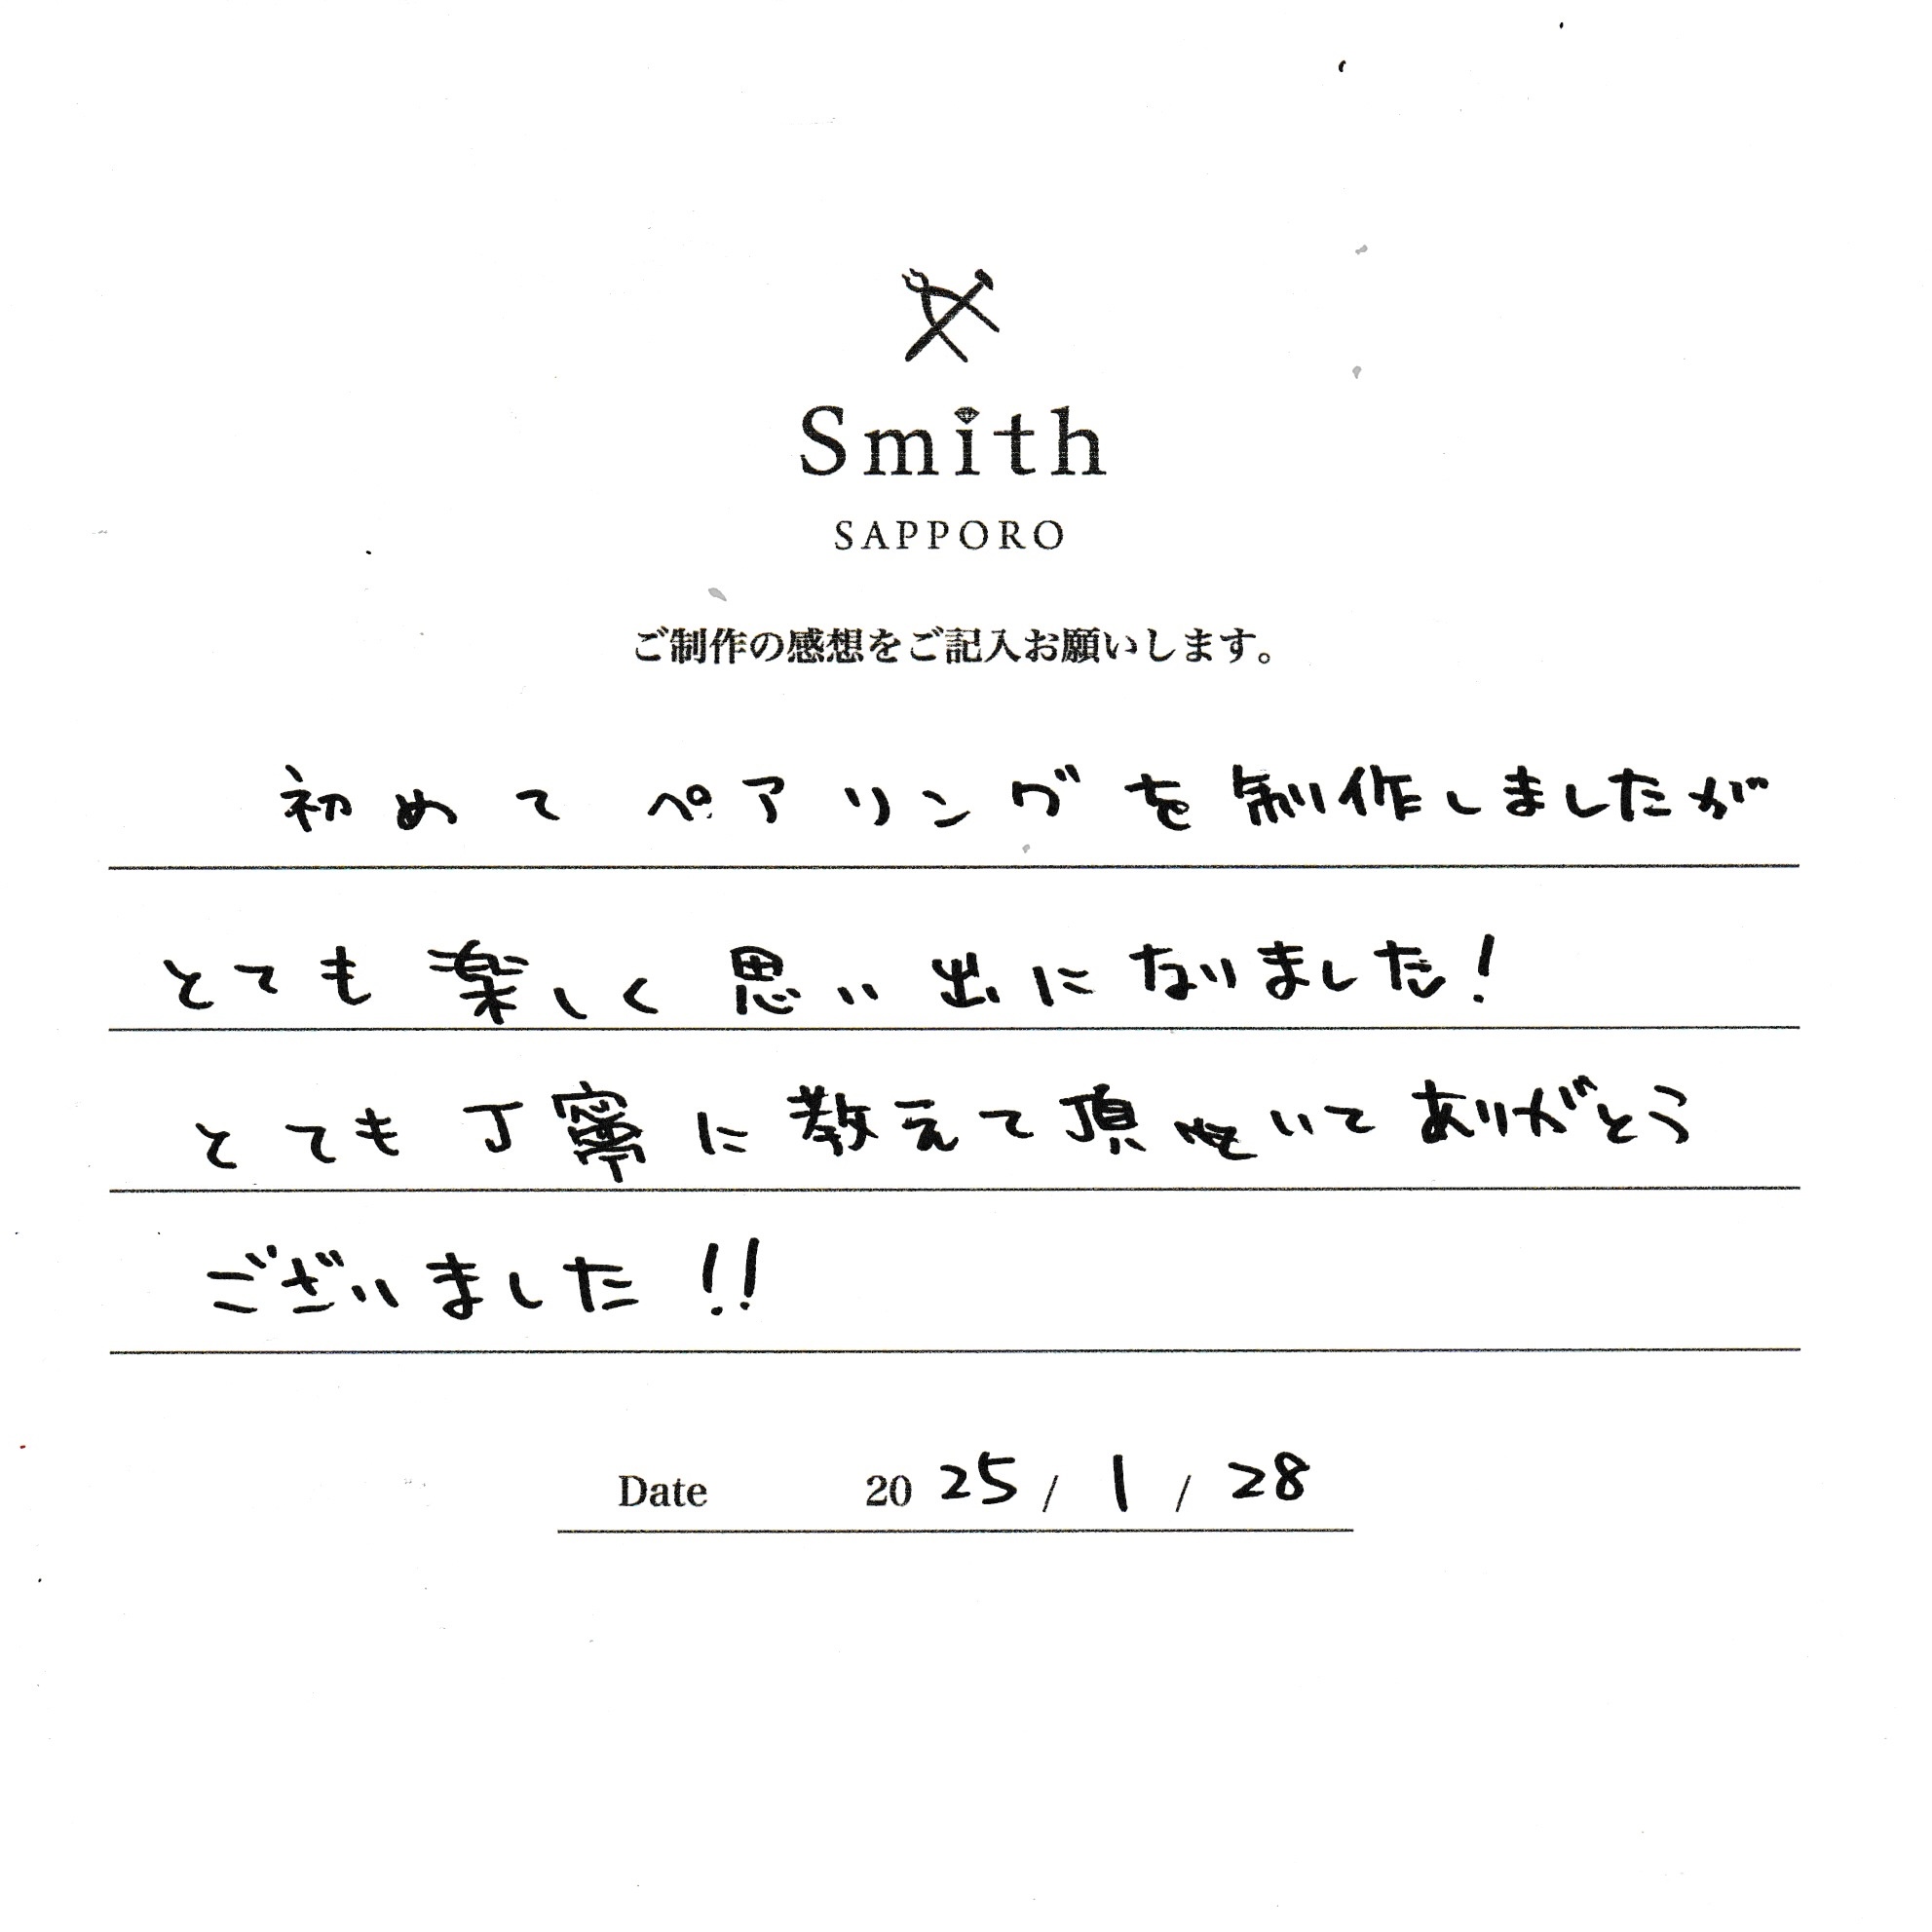 Smith
SAPPORO
ご制作の感想をご記入お願いします。
初めてペアリングを制作しましたが
とても楽しく思い出になりました!
とても丁寧に教えて頂いてありがとう
ございました!!
Date 2025/1/28